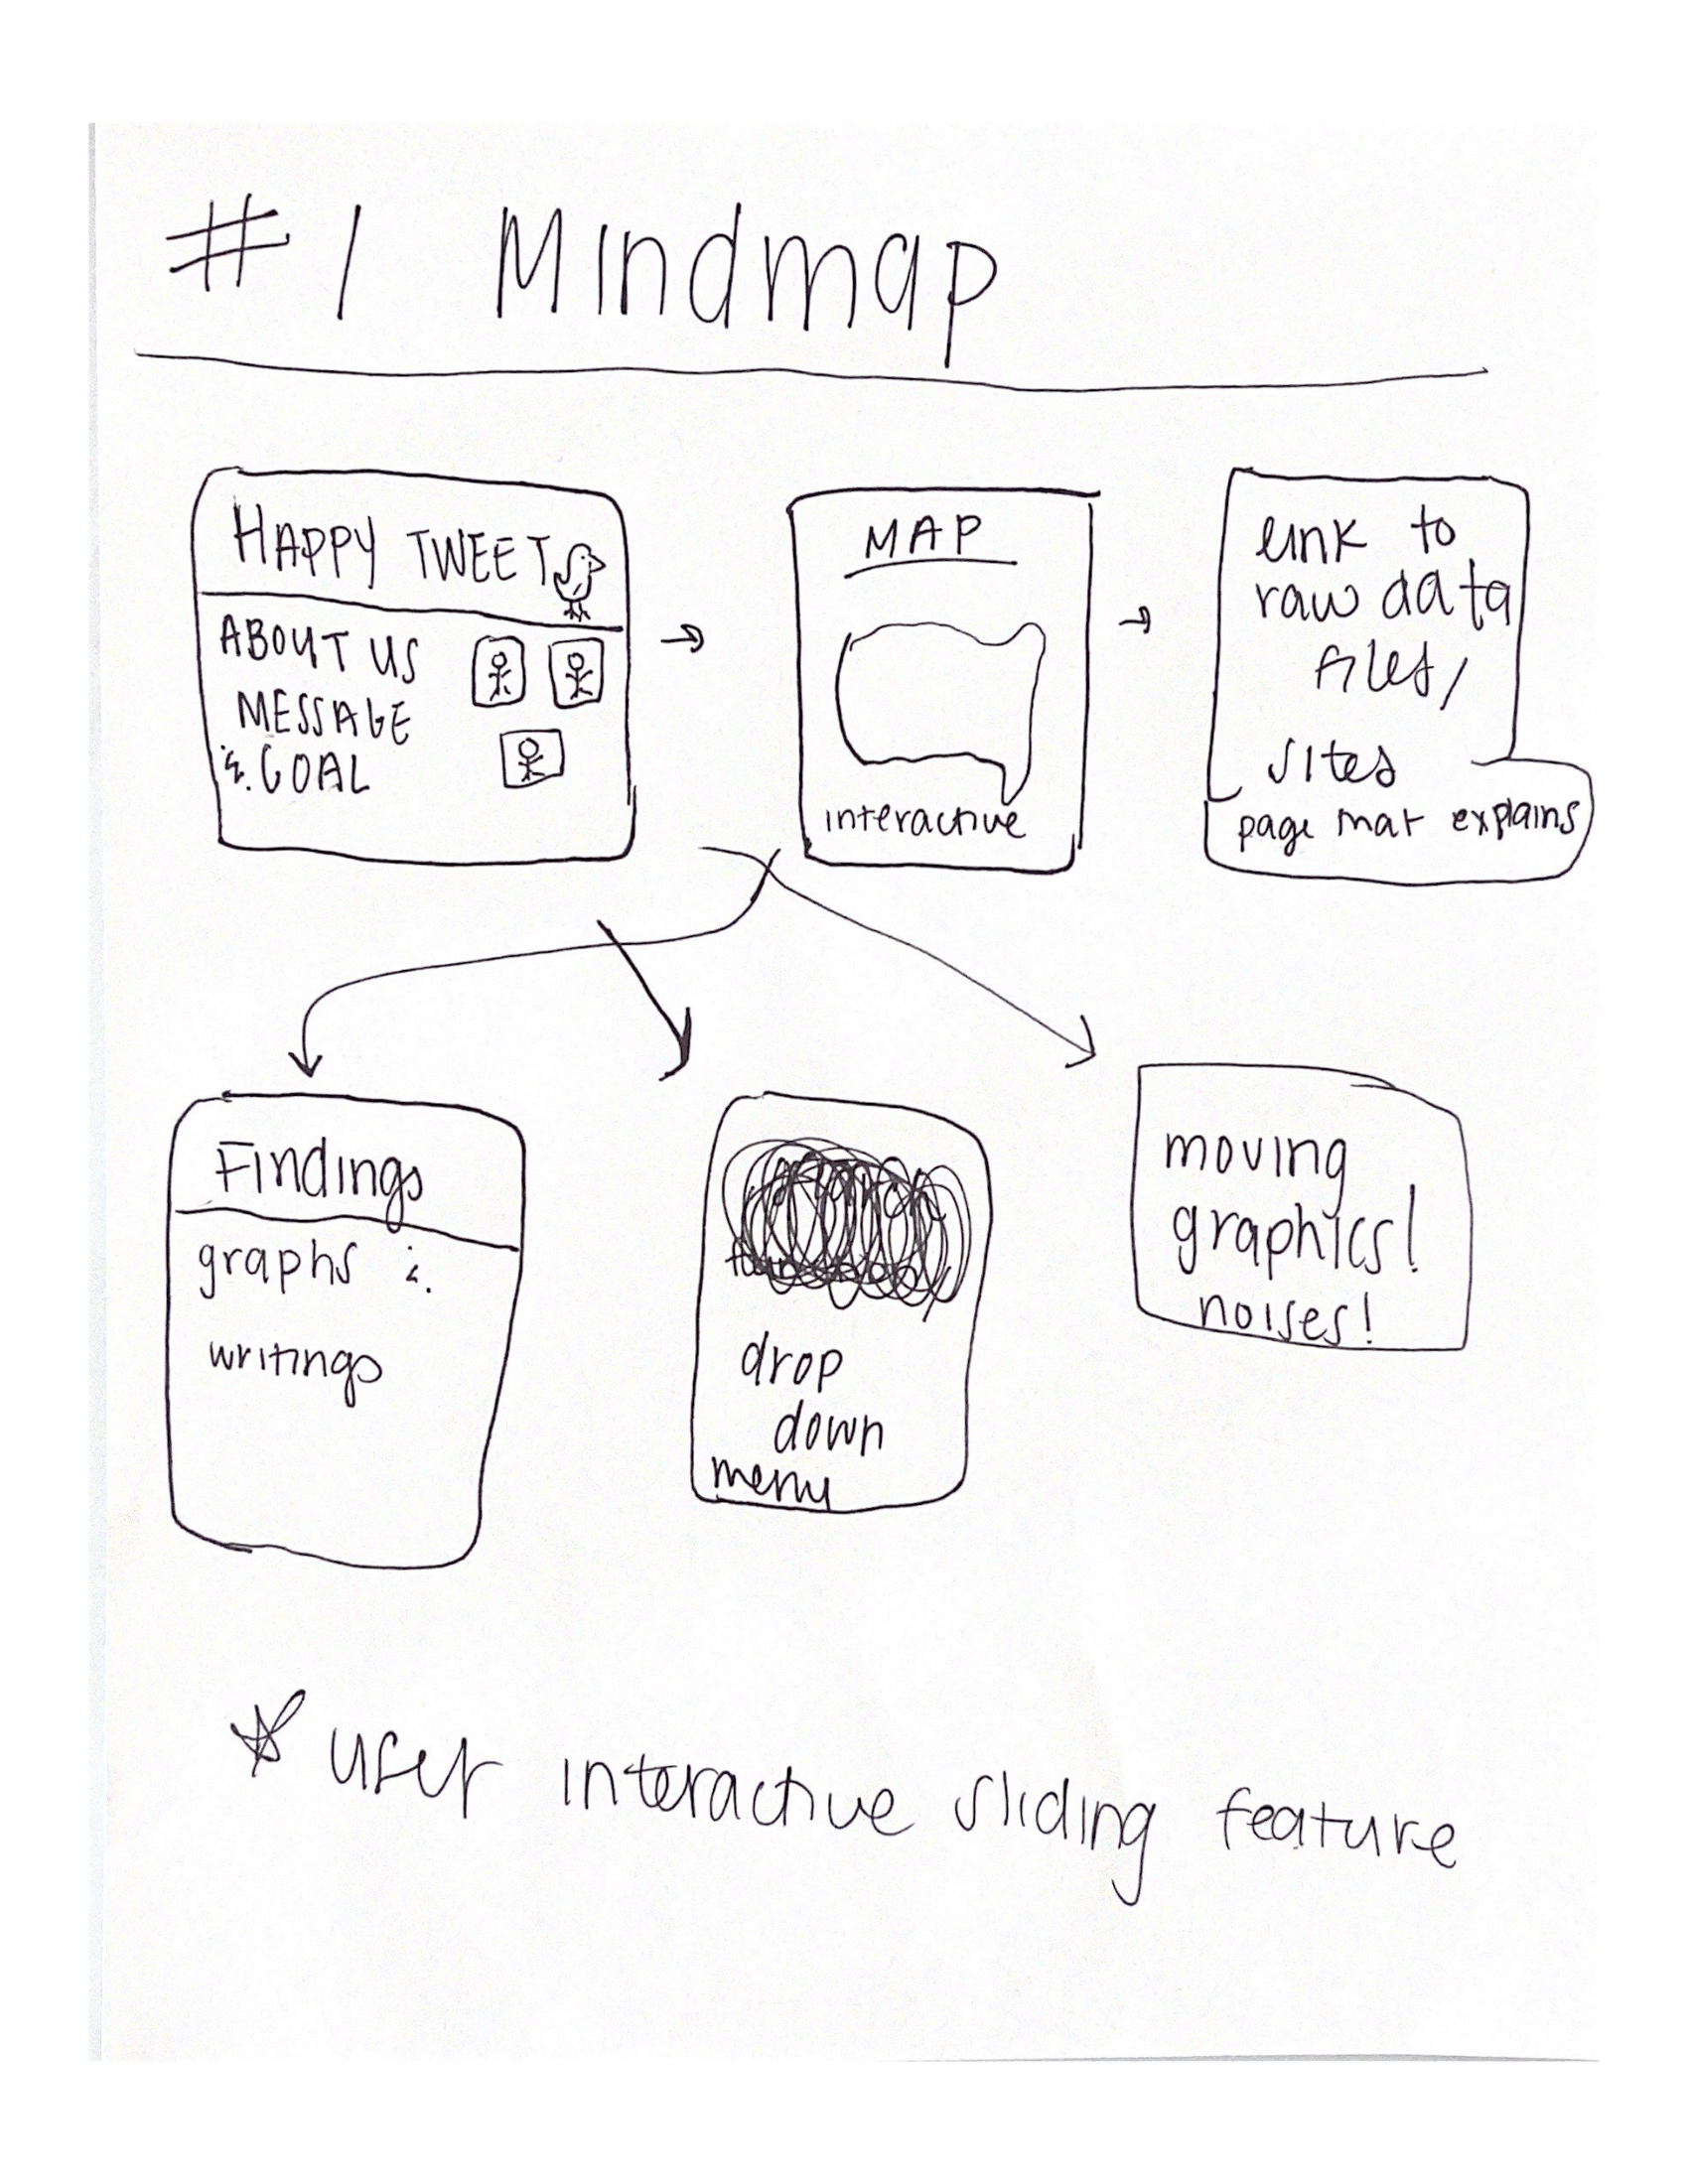 #1 Mindmap
HAPPY TWEET
ABOUT US
MESSAGE
& GOAL
MAP
interactive
link to
raw data
files/
sites
page that explains
Findings
graphs &
writings
drop
down
menu
moving
graphics!
noises!
user interactive sliding feature